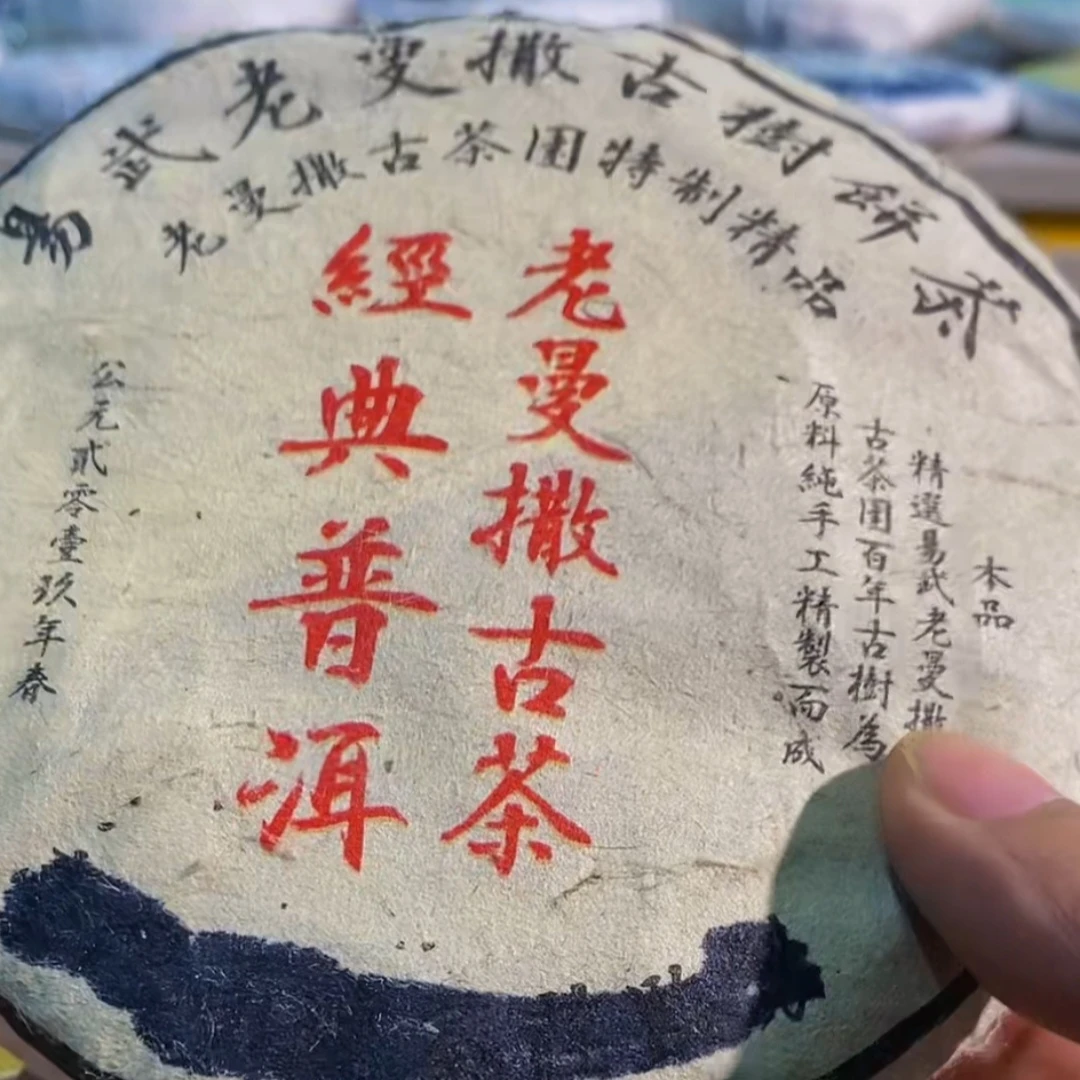 易武老曼撒古樹餅茶
老曼撒古茶园特制精品
老曼撒古茶
經典普洱
本品
精選易武老曼撒
古茶园百年古樹為
原料純手工精製而成
公元贰零壹玖年春